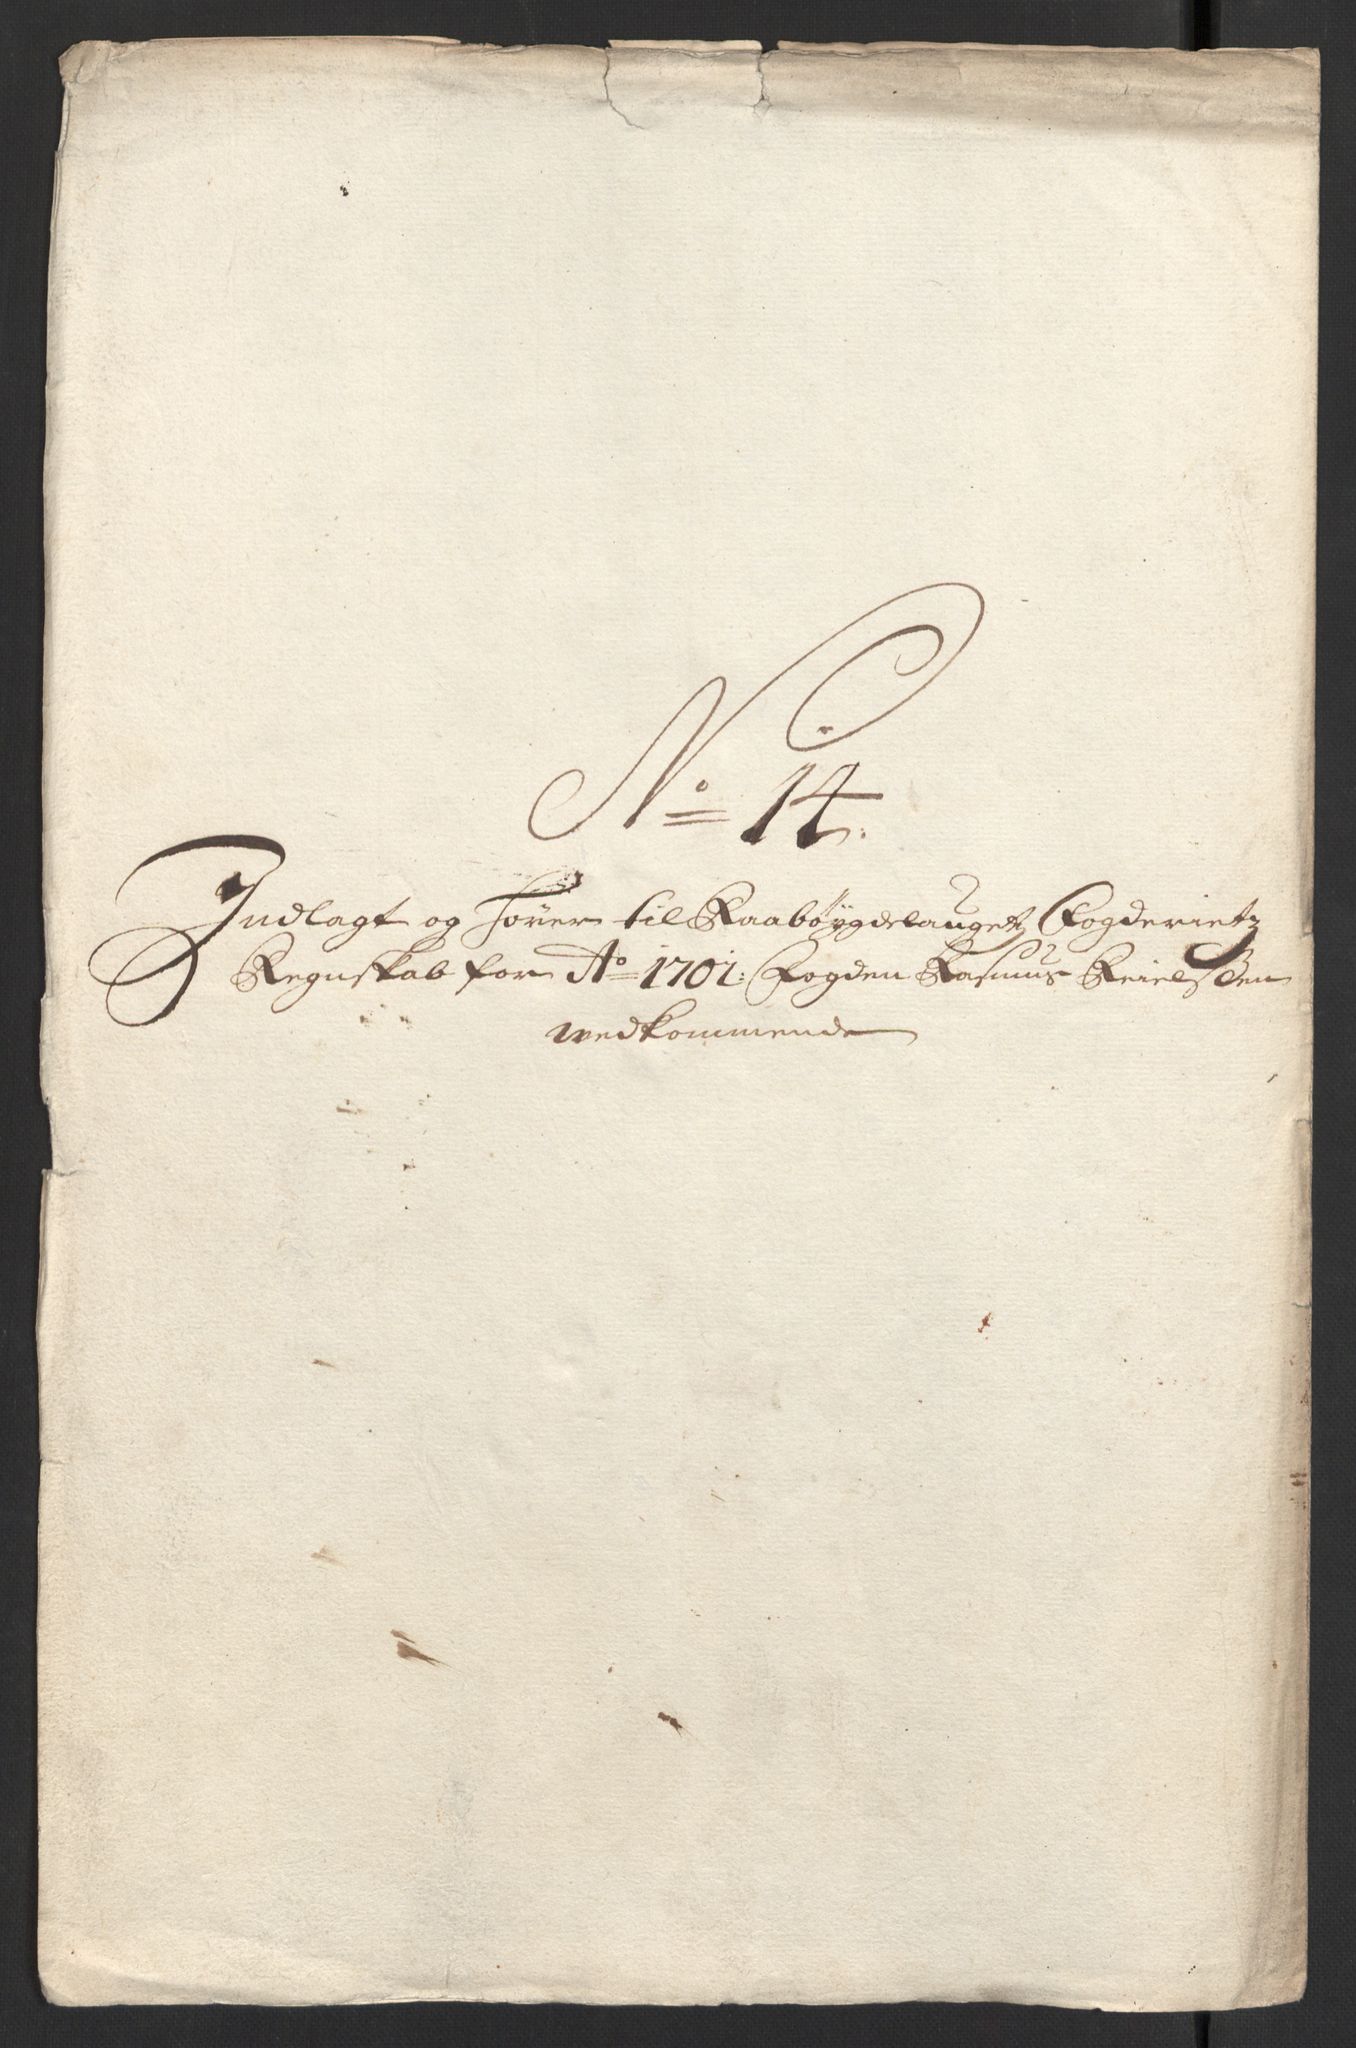 No 14.
Indlagt og hører til Raabøygdelaugetz Fogderietz
Regnskab for Ao 1701: Fogden Rasmus Reielssen
wedkommende